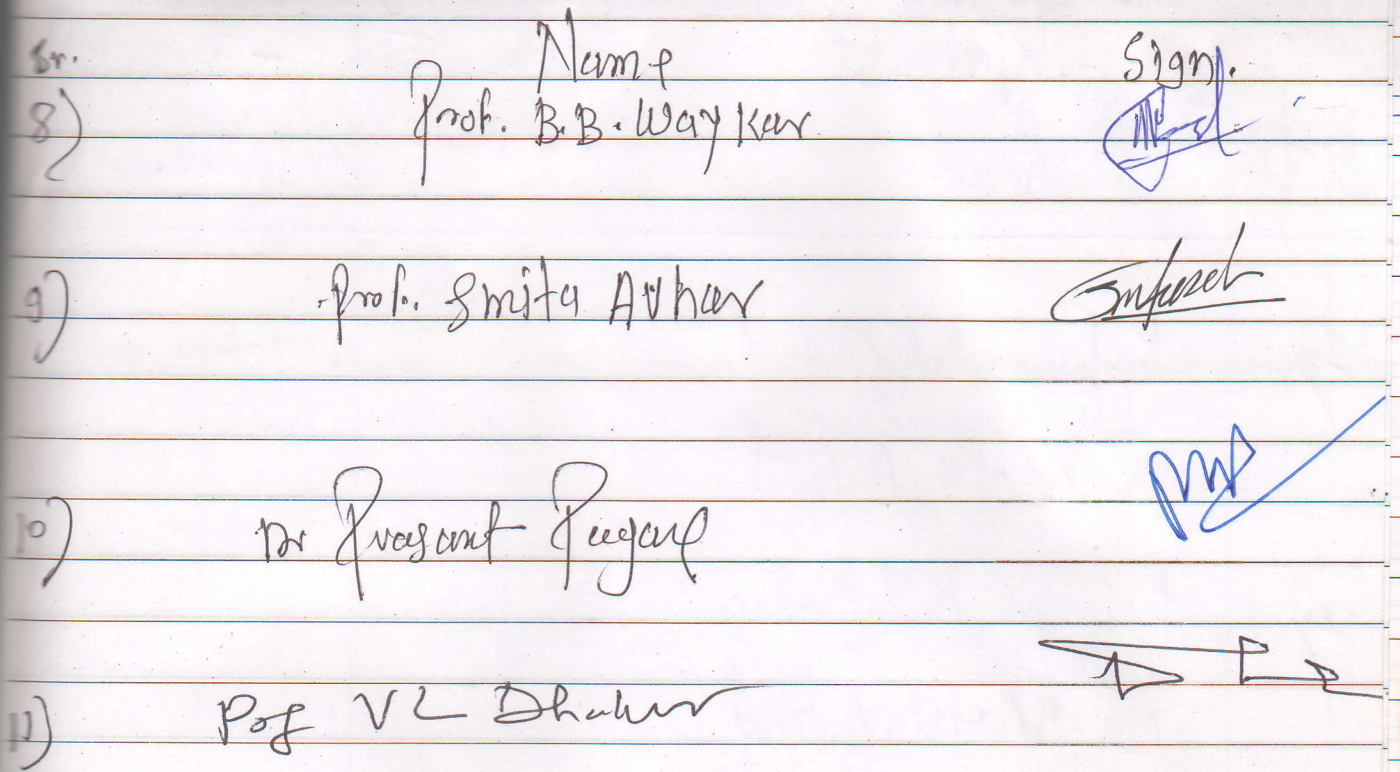 Sr. Name Sign.
8) Prof. B.B. Waykar
9) Prof. Smita Avhar
10) Dr Prasant Pagare
11) Prof V L